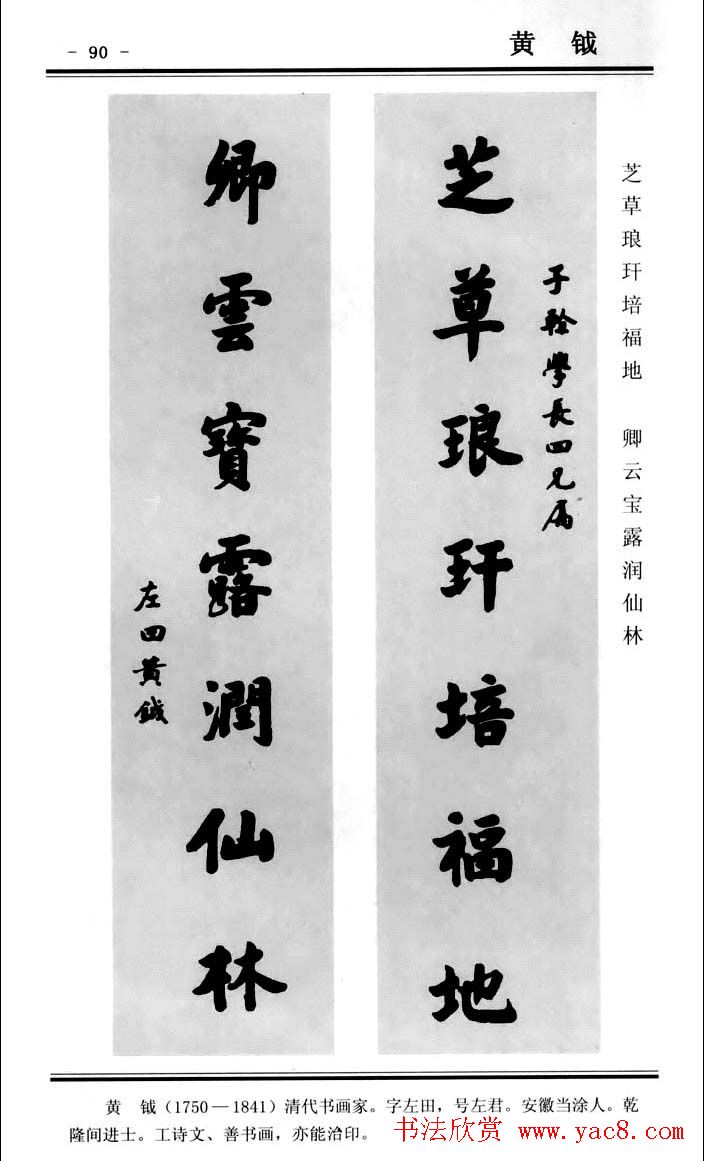 - 90 -
黄 钺
芝草琅玕培福地 卿云宝露润仙林
子龄學長四兄属
芝草琅玕培福地
卿雲寳露潤仙林
左田黄鉞
黄 钺（1750—1841）清代书画家。字左田，号左君。安徽当涂人。乾
隆间进士。工诗文、善书画，亦能治印。
书法欣赏 www.yac8.com